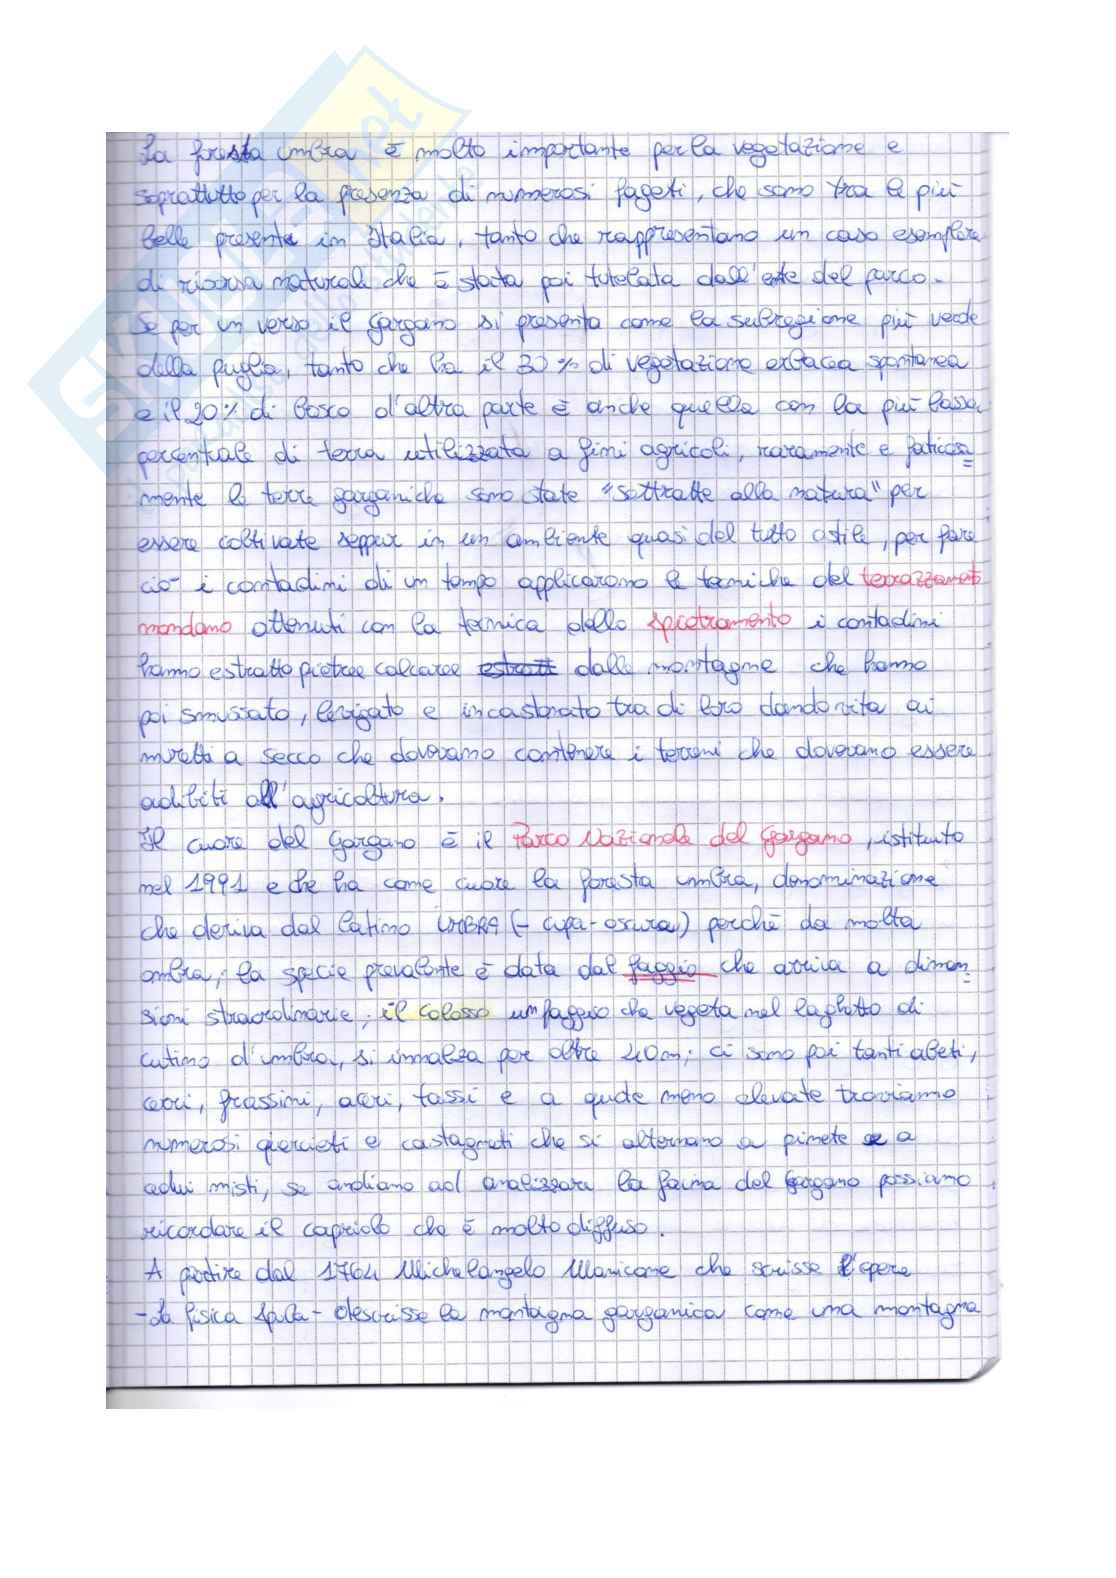 La foresta umbra è molto importante per la vegetazione e
soprattutto per la presenza di numerosi fageti, che sono tra le più
belle presenti in Italia, tanto che rappresentano un caso esemplare
di risorsa naturale che è stata poi tutelata dall'ente del parco.
Se per un verso il Gargano si presenta come la subregione più verde
della puglia, tanto che ha il 30% di vegetazione erbacea spontanea
e il 20% di bosco d'altra parte è anche quella con la più bassa
percentuale di terra utilizzata a fini agricoli, raramente e faticosa=
mente le terre garganiche sono state "sottratte alla natura" per
essere coltivate seppur in un ambiente quasi del tutto ostile, per fare
ciò i contadini di un tempo applicarono le tecniche del terrazzamento
mondano ottenuti con la tecnica dello spietramento i contadini
hanno estratto pietre calcaree dalle montagne che hanno
poi smussato, levigato e incastonato tra di loro dando vita ai
muretti a secco che dovevano contenere i terreni che dovevano essere
adibiti all'agricoltura.
Il cuore del Gargano è il Parco Nazionale del Gargano, istituito
nel 1991 e che ha come cuore la foresta umbra, denominazione
che deriva dal latino UMBRA (- cupa-oscura) perchè da molta
ombra; la specie prevalente è data dal faggio che arriva a dimen=
sioni straordinarie; il colosso un faggio che vegeta nel laghetto di
cutino d'umbra, si innalza per oltre 40m; ci sono poi tanti abeti,
cerri, frassini, aceri, tassi e a quote meno elevate troviamo
numerosi querceti e castagneti che si alternano a pinete e a
cedui misti, se andiamo ad analizzare la fauna del Gargano possiamo
ricordare il capriolo che è molto diffuso.
A partire dal 1764 Michelangelo Manicone che scrisse l'opera
-La fisica Apula- descrisse la montagna garganica come una montagna